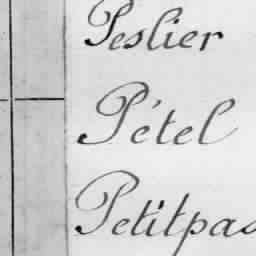 Peslier
Pétel
Petitpas